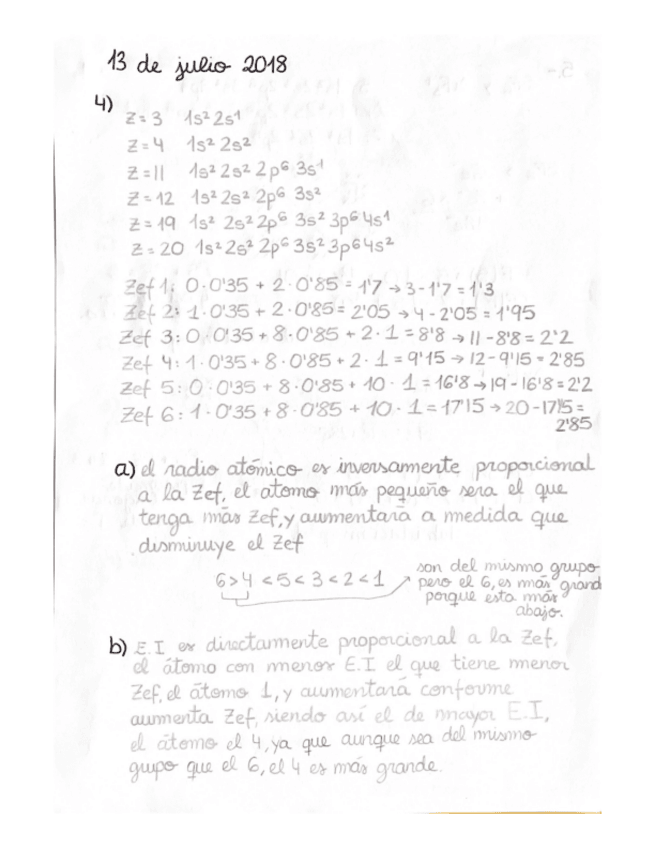 13 de julio 2018
4)
Z = 3 1s² 2s¹
Z = 4 1s² 2s²
Z = 11 1s² 2s² 2p⁶ 3s¹
Z = 12 1s² 2s² 2p⁶ 3s²
Z = 19 1s² 2s² 2p⁶ 3s² 3p⁶ 4s¹
Z = 20 1s² 2s² 2p⁶ 3s² 3p⁶ 4s²
Zef 1: 0·0'35 + 2·0'85 = 1'7 → 3-1'7 = 1'3
Zef 2: 1·0'35 + 2·0'85 = 2'05 → 4-2'05 = 1'95
Zef 3: 0·0'35 + 8·0'85 + 2·1 = 8'8 → 11-8'8 = 2'2
Zef 4: 1·0'35 + 8·0'85 + 2·1 = 9'15 → 12-9'15 = 2'85
Zef 5: 0·0'35 + 8·0'85 + 10·1 = 16'8 → 19-16'8 = 2'2
Zef 6: 1·0'35 + 8·0'85 + 10·1 = 17'15 → 20-17'15 =
2'85
a) el radio atómico es inversamente proporcional
a la Zef, el atomo más pequeño sera el que
tenga más Zef, y aumentará a medida que
disminuye el Zef
6 > 4 < 5 < 3 < 2 < 1
son del mismo grupo
pero el 6, es más grand
porque esta más
abajo.
b) E.I es directamente proporcional a la Zef,
el átomo con menor E.I el que tiene menor
Zef, el átomo 1, y aumentará conforme
aumenta Zef, siendo así el de mayor E.I,
el átomo el 4, ya que aunque sea del mismo
grupo que el 6, el 4 es más grande.